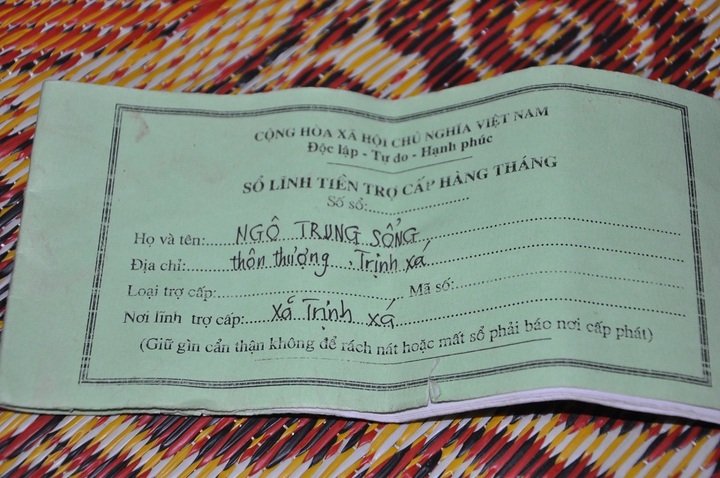 CỘNG HÒA XÃ HỘI CHỦ NGHĨA VIỆT NAM
Độc lập - Tự do - Hạnh phúc
SỔ LĨNH TIỀN TRỢ CẤP HÀNG THÁNG
Số sổ:
Họ và tên: NGÔ TRUNG SỔNG
Địa chỉ: thôn thượng Trịnh xá
Loại trợ cấp: Mã số:
Nơi lĩnh trợ cấp: xã Trịnh xá
(Giữ gìn cẩn thận không để rách nát hoặc mất sổ phải báo nơi cấp phát)